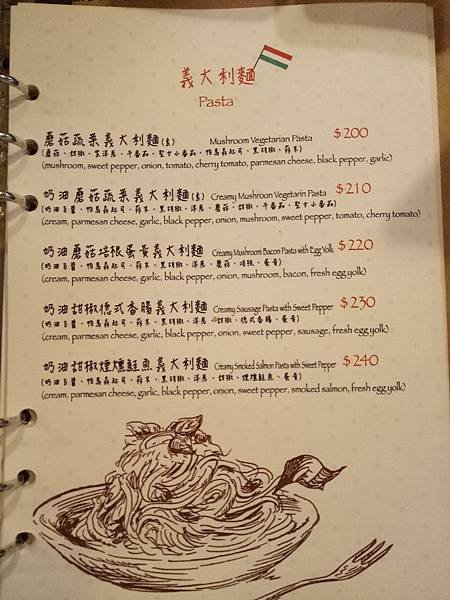 義大利麵
Pasta
蘑菇蔬菜義大利麵(素) Mushroom Vegetarian Pasta $200
(蘑菇、甜椒、黑洋蔥、干番茄、聖女小番茄、帕馬森起司、黑胡椒、蒜末)
(mushroom, sweet pepper, onion, tomato, cherry tomato, parmesan cheese, black pepper, garlic)
奶油蘑菇蔬菜義大利麵(素) Creamy Mushroon Vegetarin Pasta $210
(奶油白醬、帕馬森起司、蒜末、黑胡椒、洋蔥、蘑菇、甜椒、干番茄、聖女小番茄)
(cream, parmesan cheese, garlic, black pepper, onion, mushroom, sweet pepper, tomato, cherry tomato)
奶油蘑菇培根蛋黃義大利麵 Creamy Mushroom Bacon Pasta with Egg Yolk $220
(奶油白醬、帕馬森起司、蒜末、黑胡椒、洋蔥、蘑菇、培根、蛋黃)
(cream, parmesan cheese, garlic, black pepper, onion, mushroom, bacon, fresh egg yolk)
奶油甜椒德式香腸義大利麵 Creamy Sausage Pasta with Sweet Pepper $230
(奶油白醬、帕馬森起司、蒜末、黑胡椒、洋蔥、甜椒、德式香腸、蛋黃)
(cream, parmesan cheese, garlic, black pepper, onion, sweet pepper, sausage, fresh egg yolk)
奶油甜椒煙燻鮭魚義大利麵 Creamy Smoked Salmon Pasta with Sweet Pepper $240
(奶油白醬、帕馬森起司、蒜末、黑胡椒、洋蔥、甜椒、煙燻鮭魚、蛋黃)
(cream, parmesan cheese, garlic, black pepper, onion, sweet pepper, smoked salmon, fresh egg yolk)